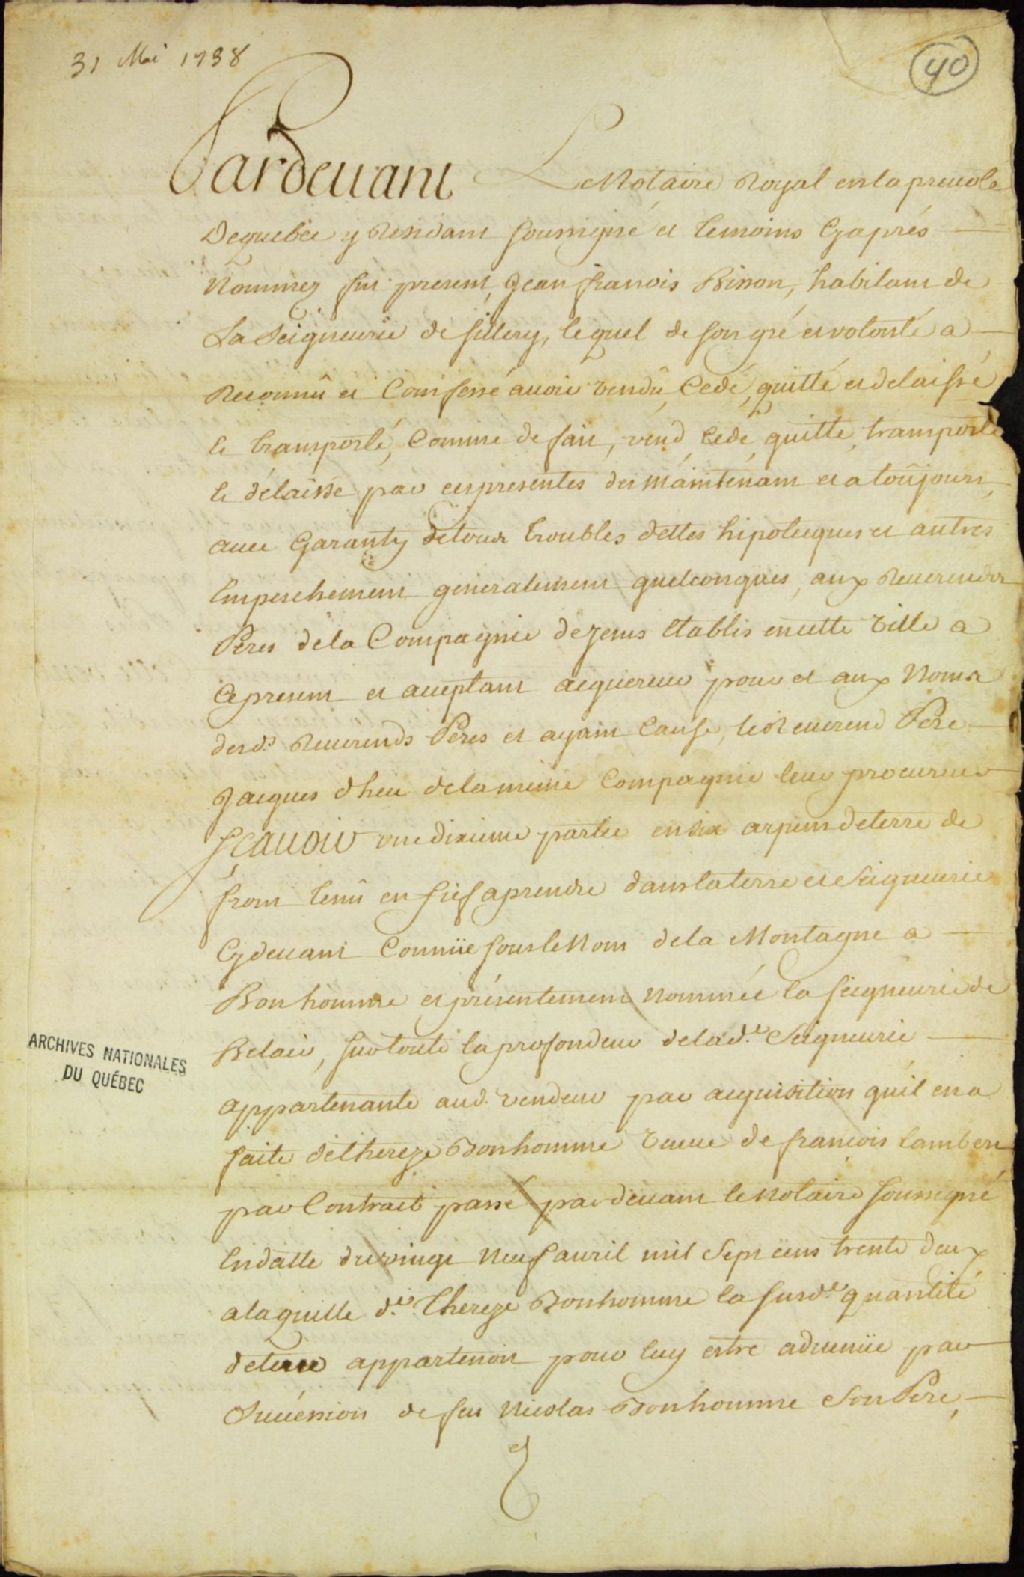 31 Mai 1738
40
Pardevant Le Notaire Royal en la prevoté
De quebec y Residant soussigné et temoins Cy aprés
Nommez fut present Jean francois Binon, habitant de
La Seigneurie de sillery, le quel de son gré et volonté a
Reconnû et Confessé avoir vendû, Cedé, quitté et delaissé
et transporté, Comme de fait, vend, cede, quitte, transporte
et délaisse par ces presentes des Maintenant et a toûjours
avec Garanty de tous troubles dettes hipoteques et autres
Empeschement generalement quelconques, aux Reverends
Peres de la Compagnie de Jesus Etablis en cette ville a
Ce present et acceptant acquereur pour et aux Noms
desd. Reverends Peres et ayant Cause, le Reverend Pere
Jacques d'heu de la meme Compagnie leur procureur
SCAVOIR une dixieme partie en six arpens de terre de
front tenû en fief a prendre dans la terre et Seigneurie
Cy devant Connüe sous le Nom de la Montagne a
Bonhomme et présentement nommée la seigneurie de
Belair, sur toute la profondeur de lad.e Seigneurie
appartenante aud. vendeur par acquisition qu'il en a
faite de thereze Bonhomme veuve de francois lambert
par Contract passé pardevant le Notaire soussigné
En datte du vingt Neuf avril mil Sept cens trente deux
a laquelle d.e Thereze Bonhomme la susd.e quantité
de terre appartenoit pour luy estre advenüe par
Succession de feu Nicolas Bonhomme Son Pere,
ARCHIVES NATIONALES
DU QUÉBEC